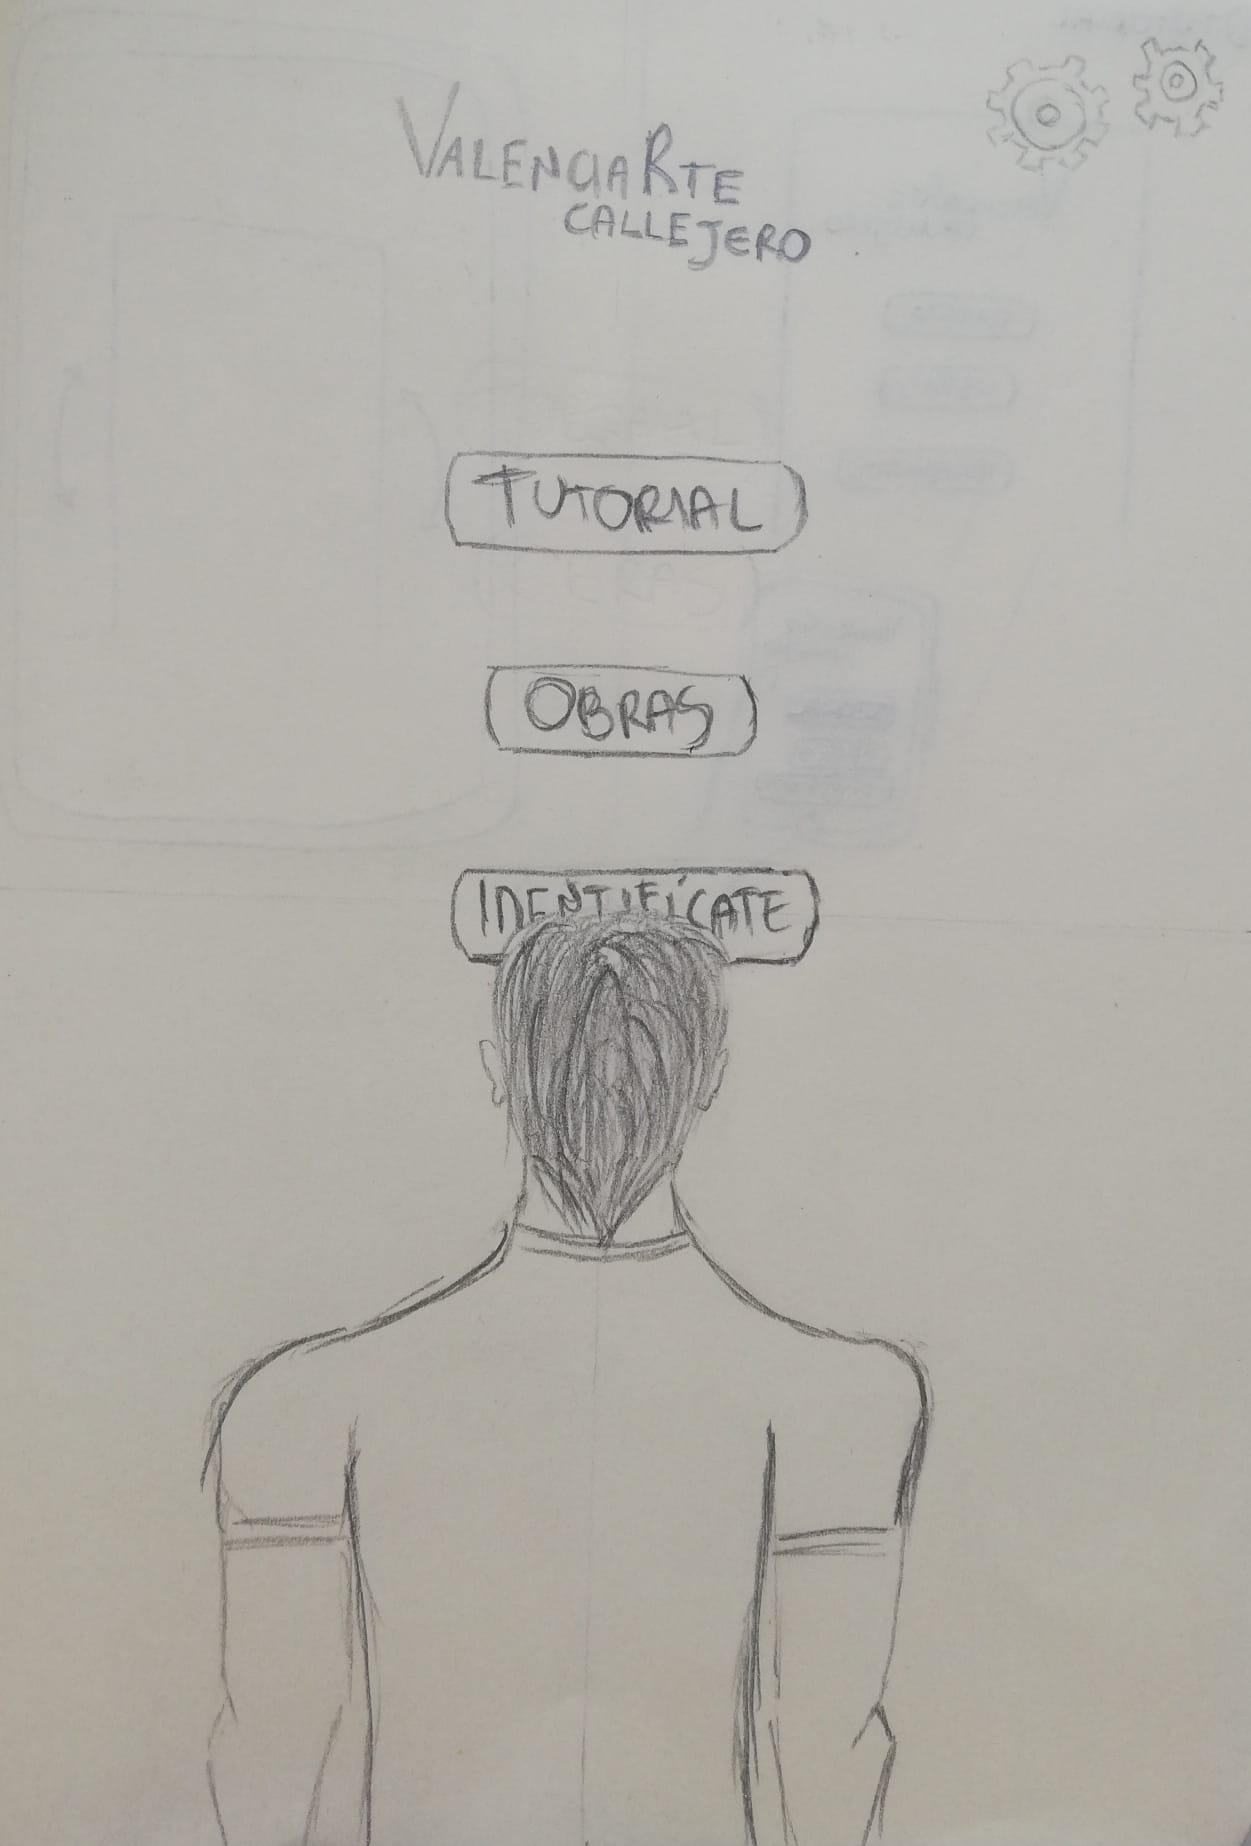 VALENCIARTE
CALLEJERO
TUTORIAL
OBRAS
IDENTIFÍCATE